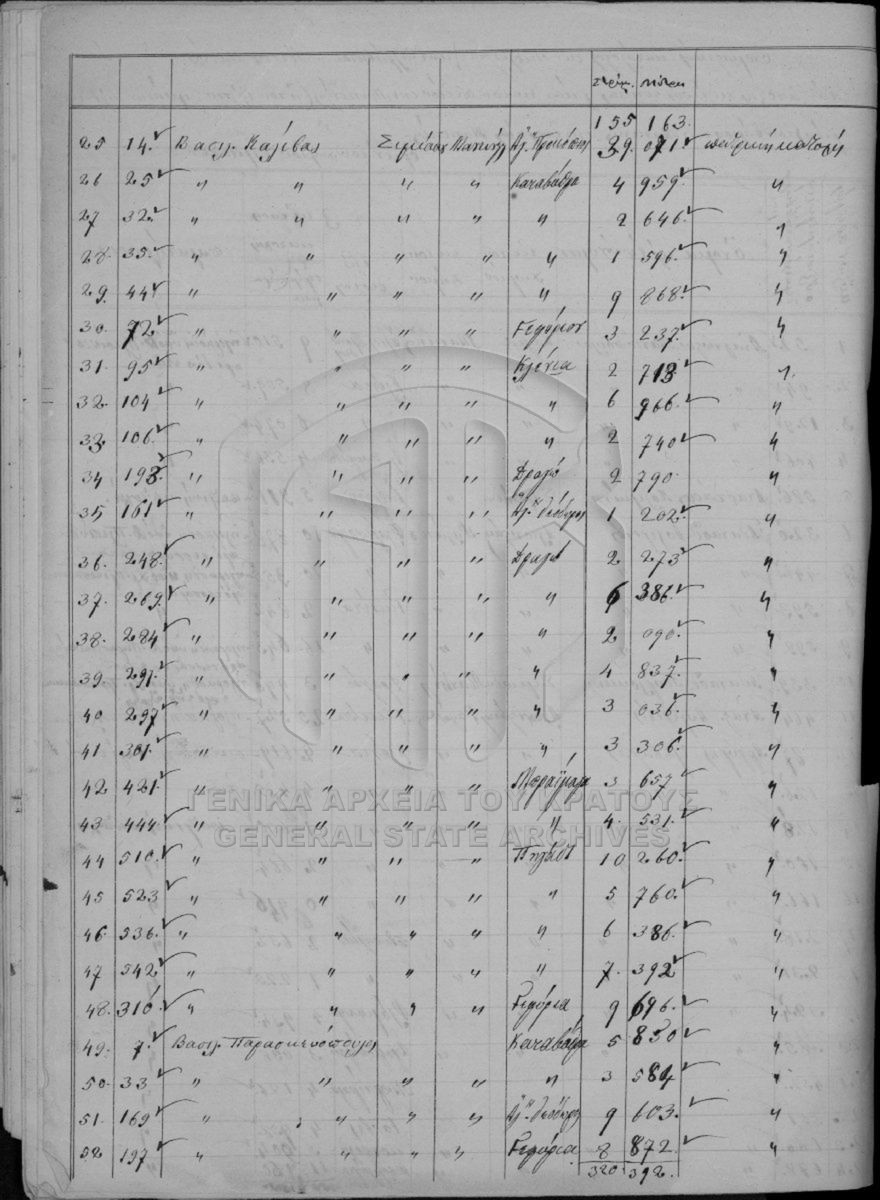 Στρέμ. Μέτρα
155 163.
25 14. Βασιλ. Καλύβας Αγ. 39. 071
26 25 " " " " Καναβάθρα 4 959. "
27 32. " " " " " 2 646. "
28. 35. " " " " " 1 596. "
29. 44 " " " " " 9 868. "
30. 72 " " " " 3 237. "
31. 95 " " " " Κλένια 2 713 "
32. 104 " " " " " 6 966. "
33 106. " " " " " 2 740 "
34 193. " " " " Δραγό 2 790. "
35 161 " " " " Αγ. 1 202. "
36. 248. " " " " 2 273 "
37. 269. " " " " " 6 386. "
38. 284 " " " " " 2 090. "
39. 291. " " " " " 4 837. "
40 297 " " " " " 3 036. "
41 301. " " " " " 3 306. "
42 421. " " " " 3 657 "
43. 444. " " " " " 4. 531. "
44 510. " " " " 10 260. "
45 523 " " " " " 5 760. "
46. 536. " " " " " 6 386. "
47 542 " " " " " 7. 392 "
48. 310 " " " " Γεφύρια 9 696. "
49. 7. Βασιλ. Παρασκευόπουλος Καναβάθρα 5 830 "
50. 33 " " " " " 3 584 "
51. 169 " " " " Αγ. 9 603. "
52 197 " " " " Γεφύρια 8 872. "
320. 392.
ΓΕΝΙΚΑ ΑΡΧΕΙΑ ΤΟΥ ΚΡΑΤΟΥΣ
GENERAL STATE ARCHIVES